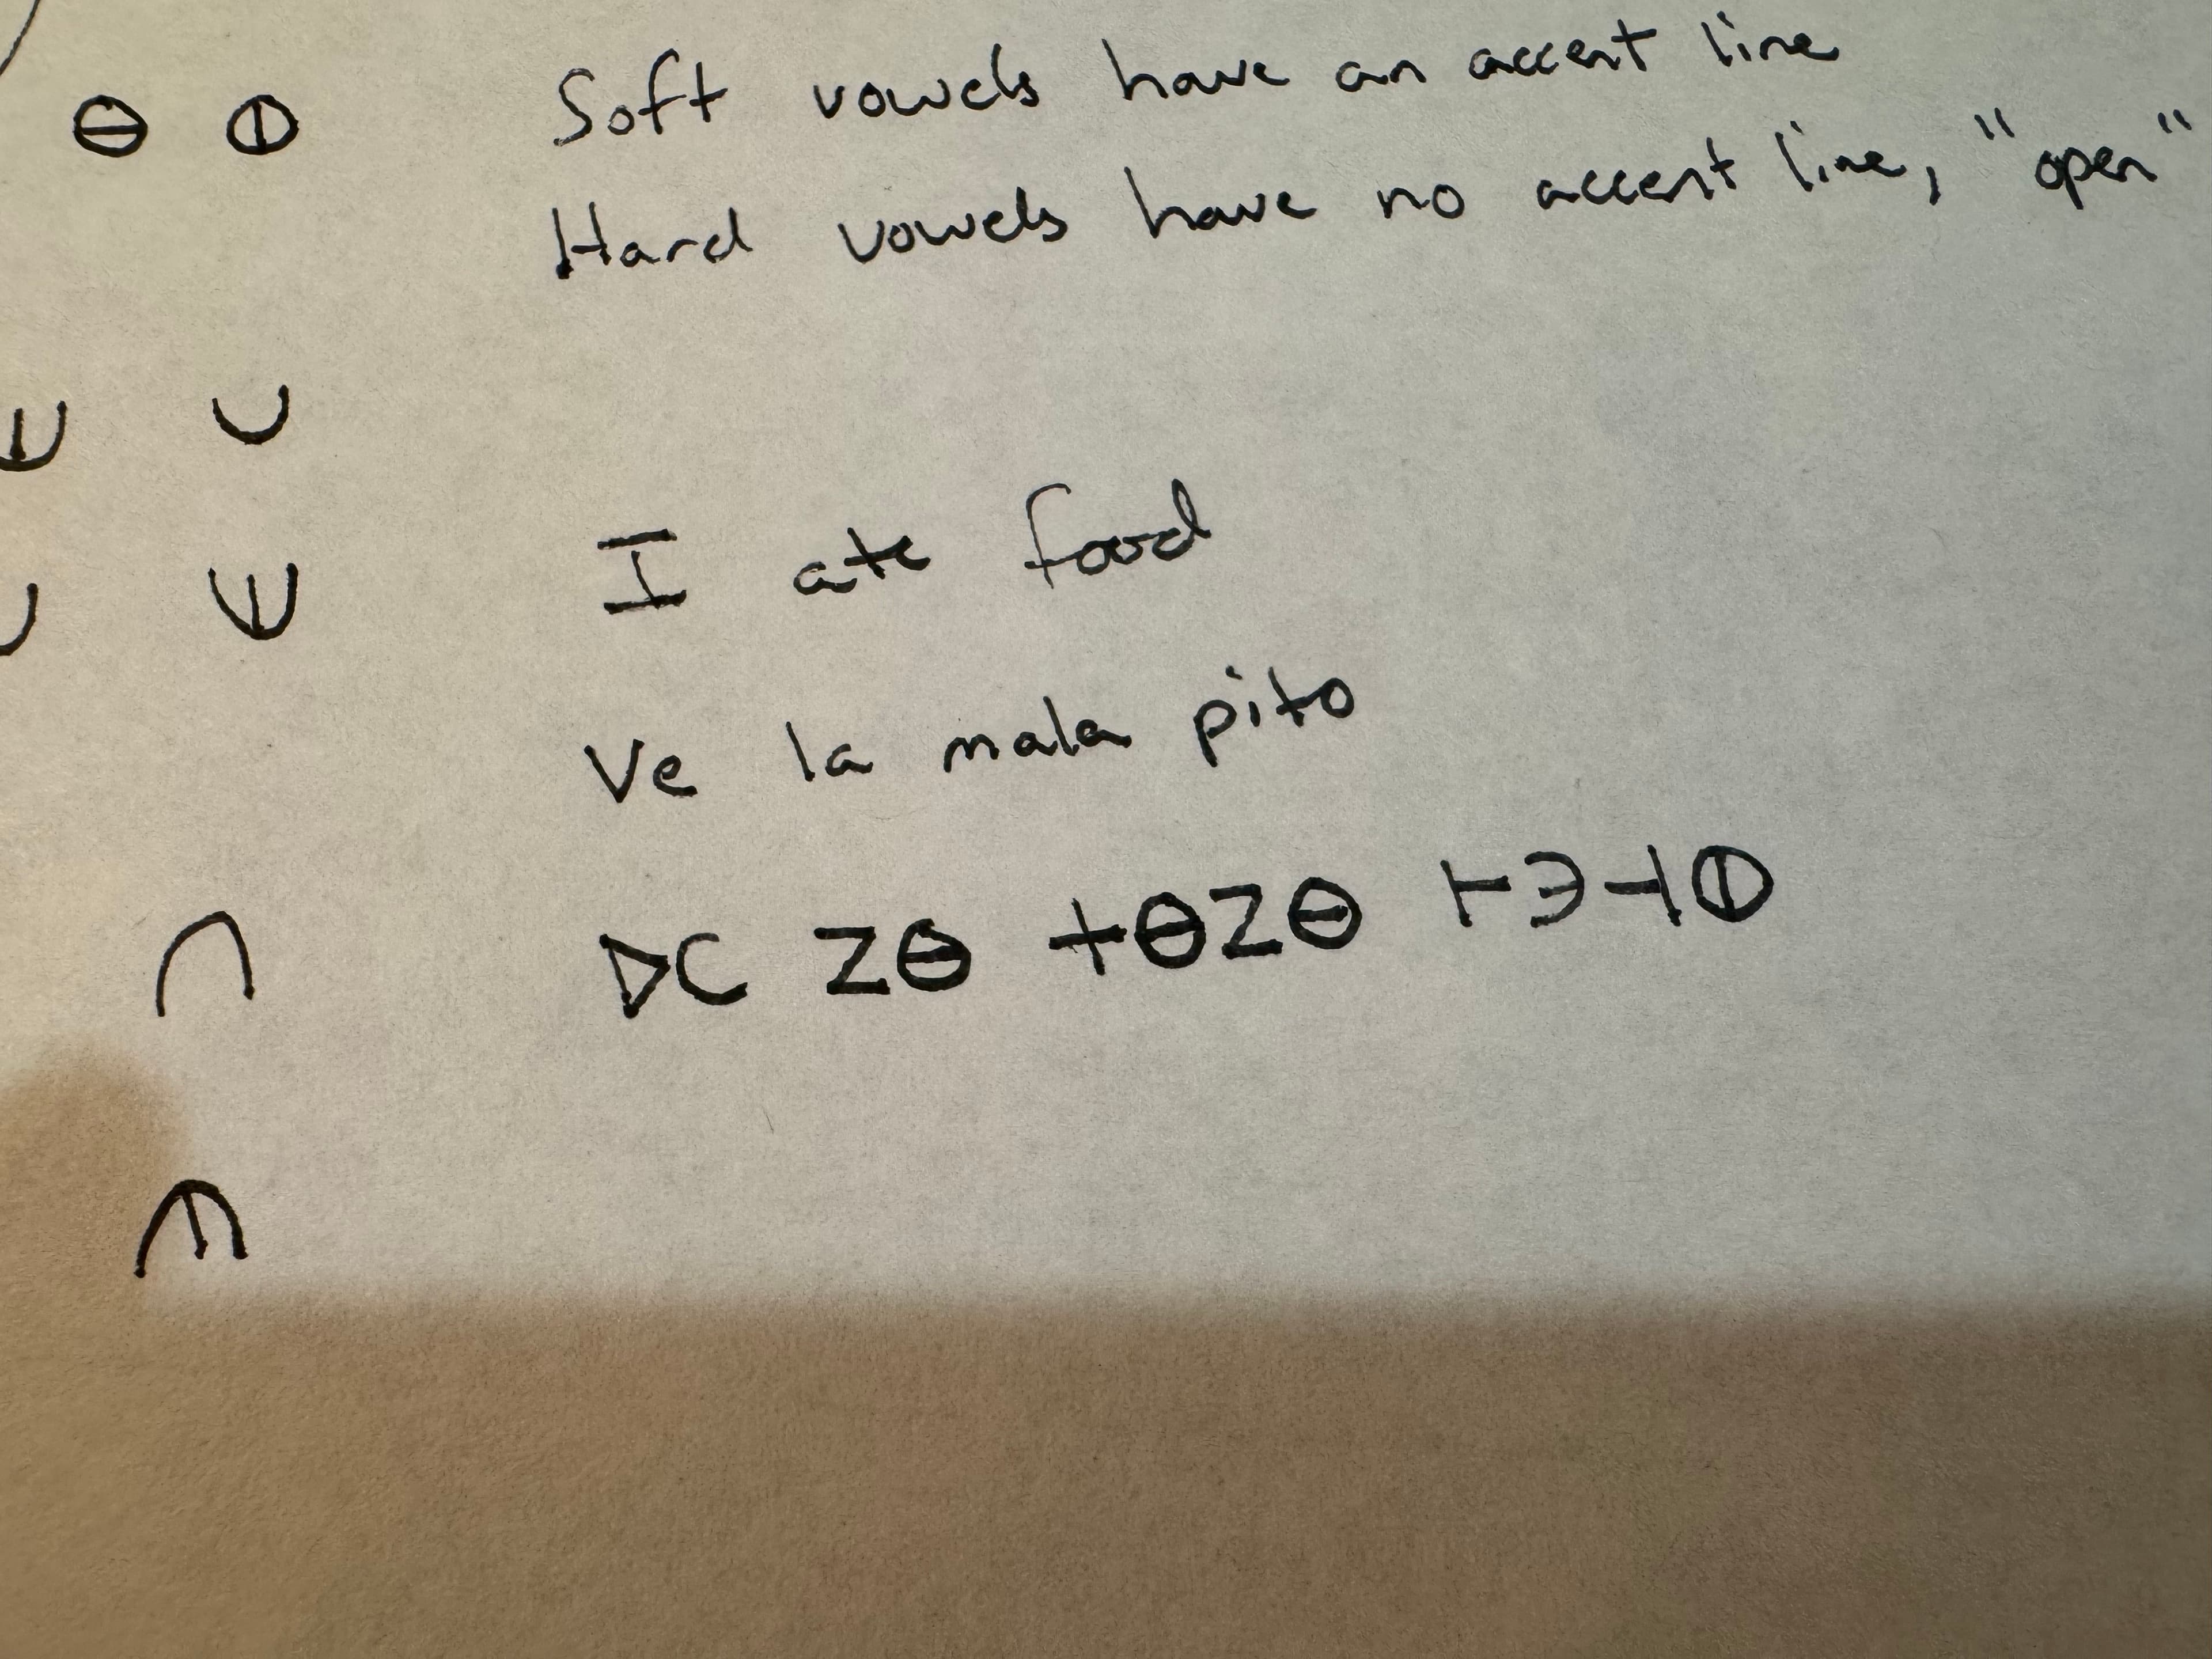 ⊖ ⦶ Soft vowels have an accent line
Hard vowels have no accent line, "open"
∪
I ate food
Ve la mala pito
▷C Z⊖ +⊖Z⊖ ⊢∋⊣⦶
∩